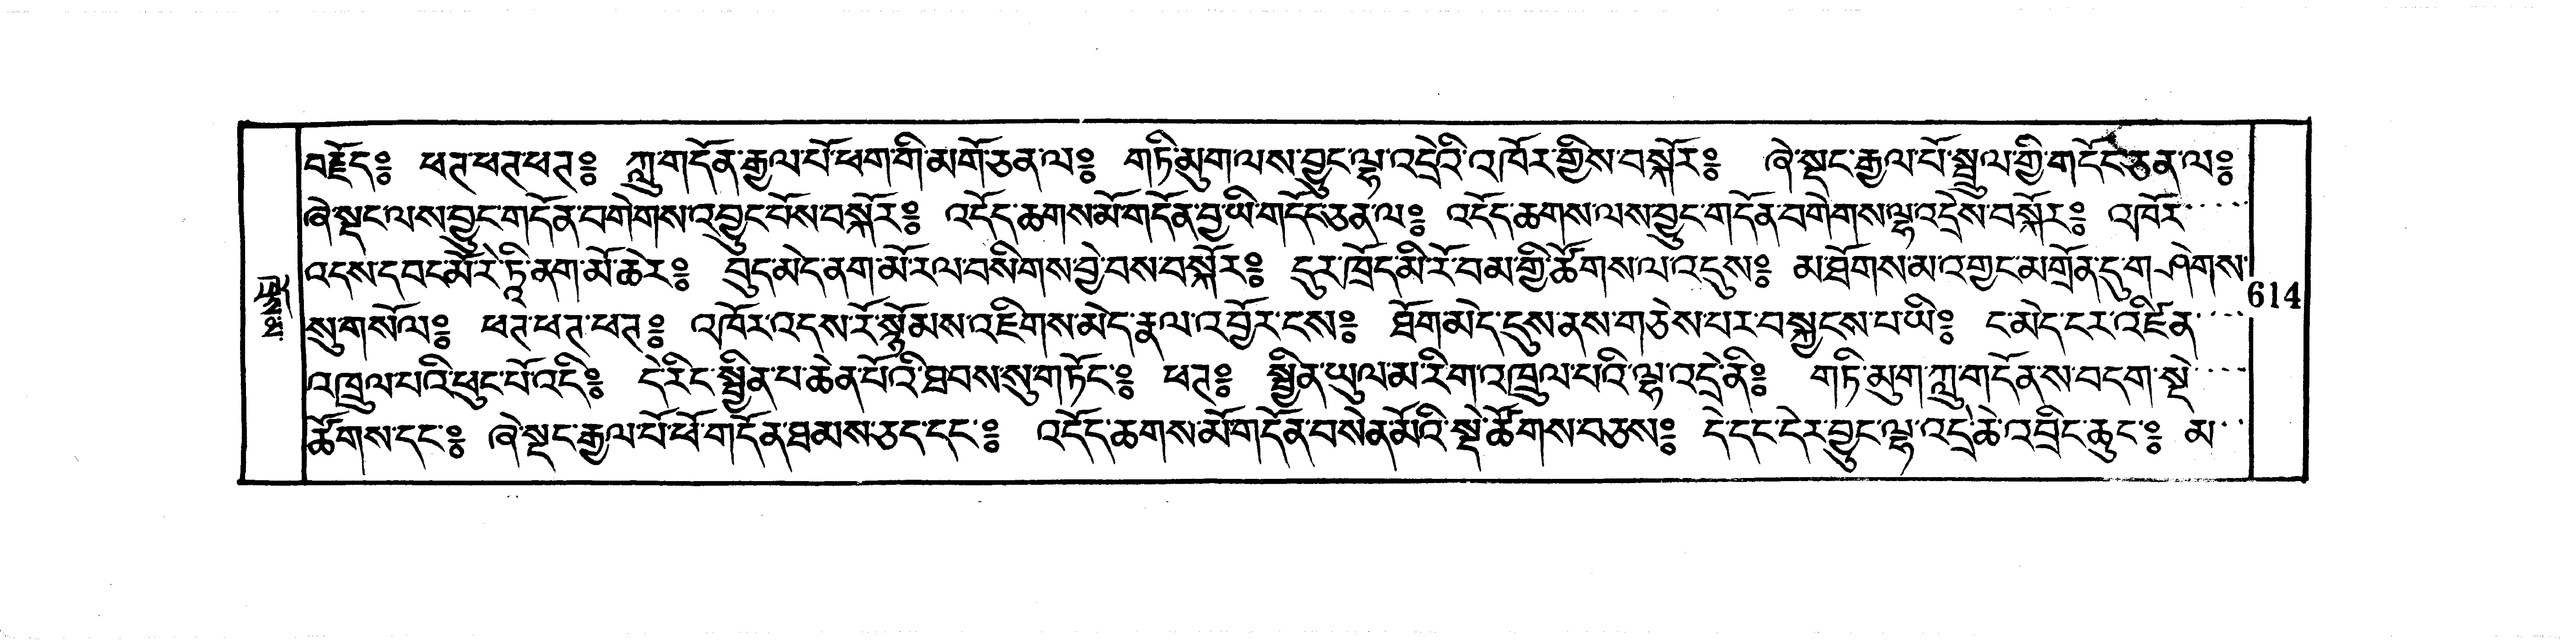 བརྗོད༔ ཕཊ་ཕཊ་ཕཊ༔ ཀླུ་གདོན་རྒྱལ་པོ་ཕག་གི་མགོ་ཅན་ལ༔ གཏི་མུག་ལས་བྱུང་ལྷ་འདྲེའི་འཁོར་གྱིས་བསྐོར༔ ཞེ་སྡང་རྒྱལ་པོ་སྦྲུལ་གྱི་གདོང་ཅན་ལ༔
ཞེ་སྡང་ལས་བྱུང་གདོན་བགེགས་འབྱུང་པོས་བསྐོར༔ འདོད་ཆགས་མོ་གདོན་བྱ་ཡི་གདོང་ཅན་ལ༔ འདོད་ཆགས་ལས་བྱུང་གདོན་བགེགས་ལྷ་འདྲེས་བསྐོར༔ འཁོར་
འདས་དབང་མོ་རེ་ཏཱི་ནག་མོ་ཆེར༔ བུད་མེད་ནག་མོ་རལ་བསིགས་བྱེ་བས་བསྐོར༔ དུར་ཁྲོད་མི་རོ་བམ་གྱི་ཚོགས་ལ་འདུས༔ མ་ཐོགས་མ་འགྱང་མགྲོན་དུ་གཤེགས་
སུ་གསོལ༔ ཕཊ་ཕཊ་ཕཊ༔ འཁོར་འདས་རོ་སྙོམས་འཇིགས་མེད་རྣལ་འབྱོར་ངས༔ ཐོག་མེད་དུས་ནས་གཅེས་པར་བསྐྱངས་པ་ཡི༔ ང་མེད་ངར་འཛིན་
འཁྲུལ་པའི་ཕུང་པོ་འདི༔ དེ་རིང་སྦྱིན་པ་ཆེན་པོའི་ཐབས་སུ་གཏོང་༔ ཕཊ༔ སྦྱིན་ཡུལ་མ་རིག་འཁྲུལ་པའི་ལྷ་འདྲེ་ནི༔ གཏི་མུག་ཀླུ་གདོན་ས་བདག་སྡེ་
ཚོགས་དང་༔ ཞེ་སྡང་རྒྱལ་པོ་ཕོ་གདོན་ཐམས་ཅད་དང་༔ འདོད་ཆགས་མོ་གདོན་བསེན་མོའི་སྡེ་ཚོགས་བཅས༔ དེ་དང་དེར་བྱུང་ལྷ་འདྲེ་ཆེ་འབྲིང་ཆུང་༔ མ་
614